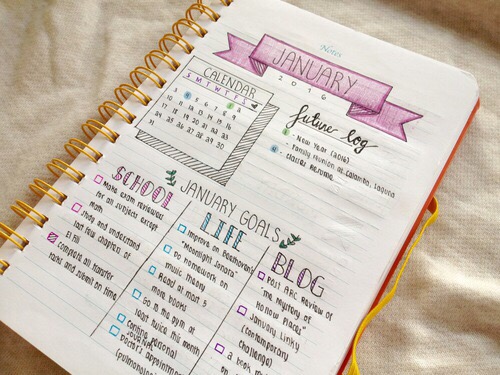 Notes
JANUARY
2016
CALENDAR
S M T W T F S
1 2
3 4 5 6 7 8 9
10 11 12 13 14 15 16
17 18 19 20 21 22 23
24 25 26 27 28 29 30
31
future log
1 - New Year (2016)
- Family reunion at Calamba, Laguna
4 - classes resume
JANUARY GOALS
SCHOOL
Make exam reviewers
for all subjects except
Math
Study and understand
last few chapters of
El Fili
Complete all transfer
tasks and submit on time
LIFE
Improve on Beethoven's
"Moonlight Sonata"
Do homework on
music theory
Read at least 3
more books
Go to the gym at
least twice this month
Continue personal
journal
Doctor's appointment
BLOG
Post ARC Review of
"The Mystery of
Hollow Places"
January Linky
(Contemporary
Challenge)
a book